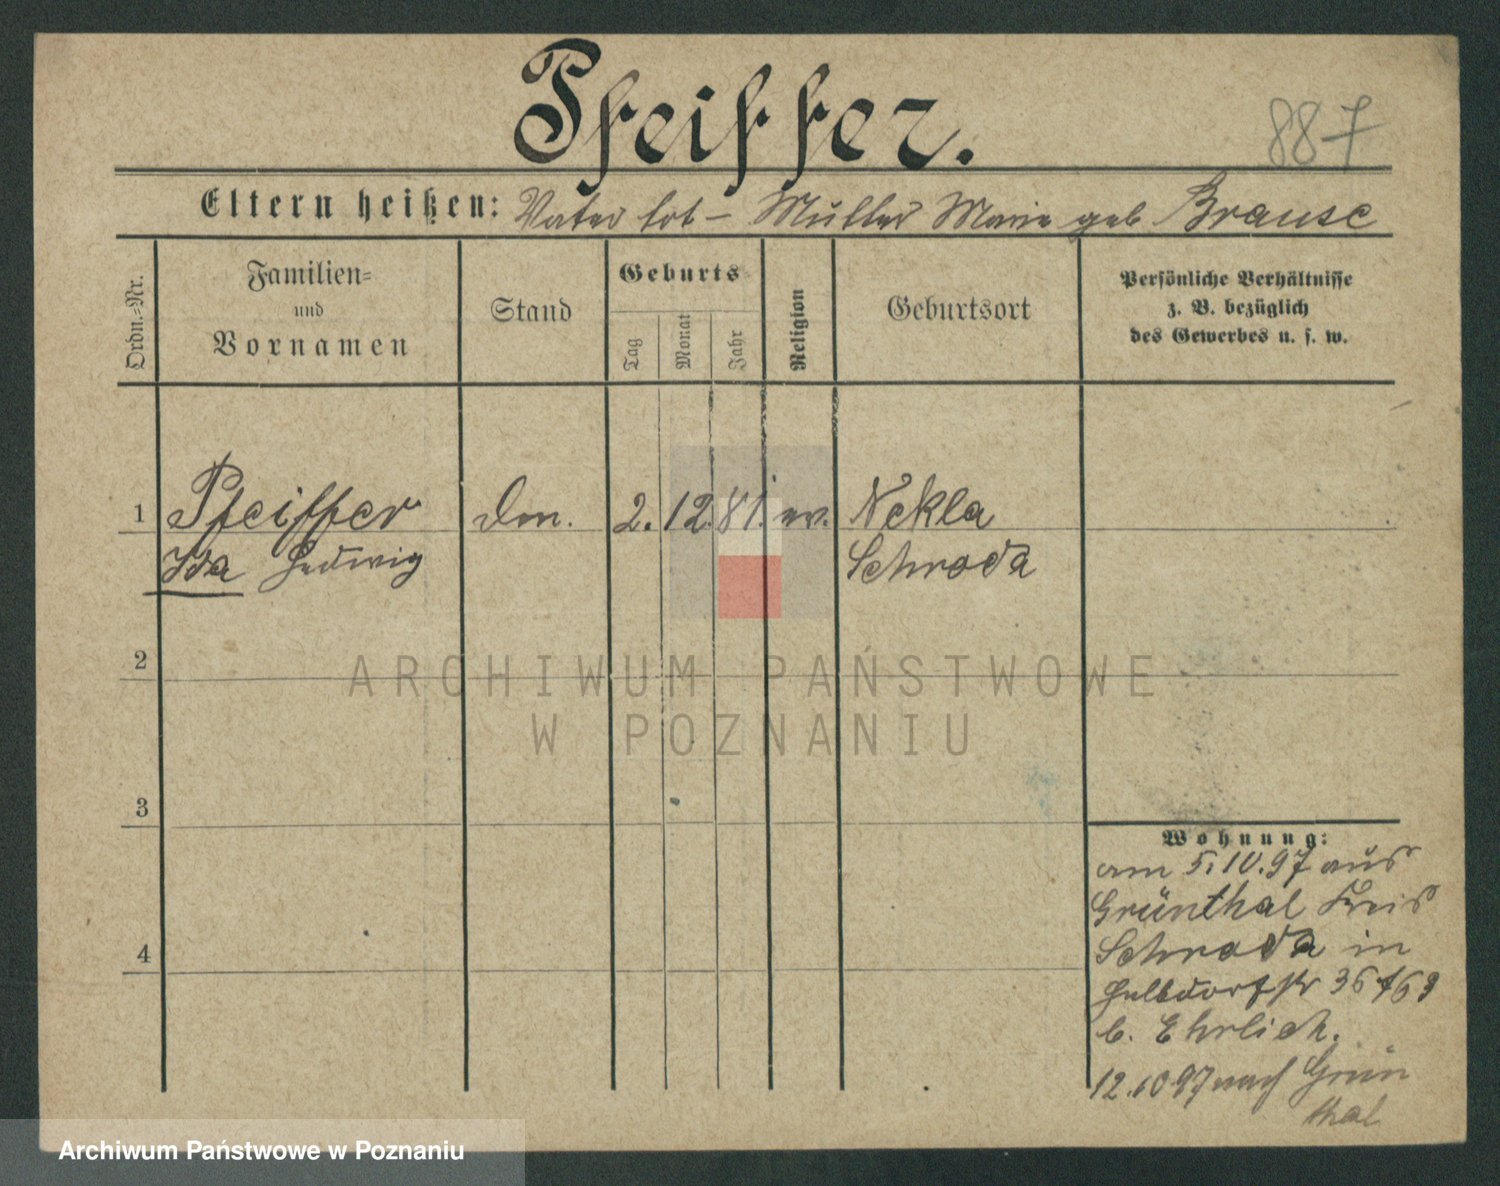 Pfeiffer.
887
Eltern heißen: Vater tot – Mutter Marie geb Brause
Ordn.-Nr.
Familien-
und
Vornamen
Stand
Geburts
Tag
Monat
Jahr
Religion
Geburtsort
Persönliche Verhältnisse
z. B. bezüglich
des Gewerbes u. s. w.
1 Pfeiffer 2. 12. 81. ev. Nekla
Ida Hedwig Schroda
2
ARCHIWUM PAŃSTWOWE
W POZNANIU
3
4
Wohnung:
am 5.10.97 aus
Grünthal Kreis
Schroda in
Halbdorfstr 36
b. Ehrlich.
12.10 97 nach Grün
thal
Archiwum Państwowe w Poznaniu